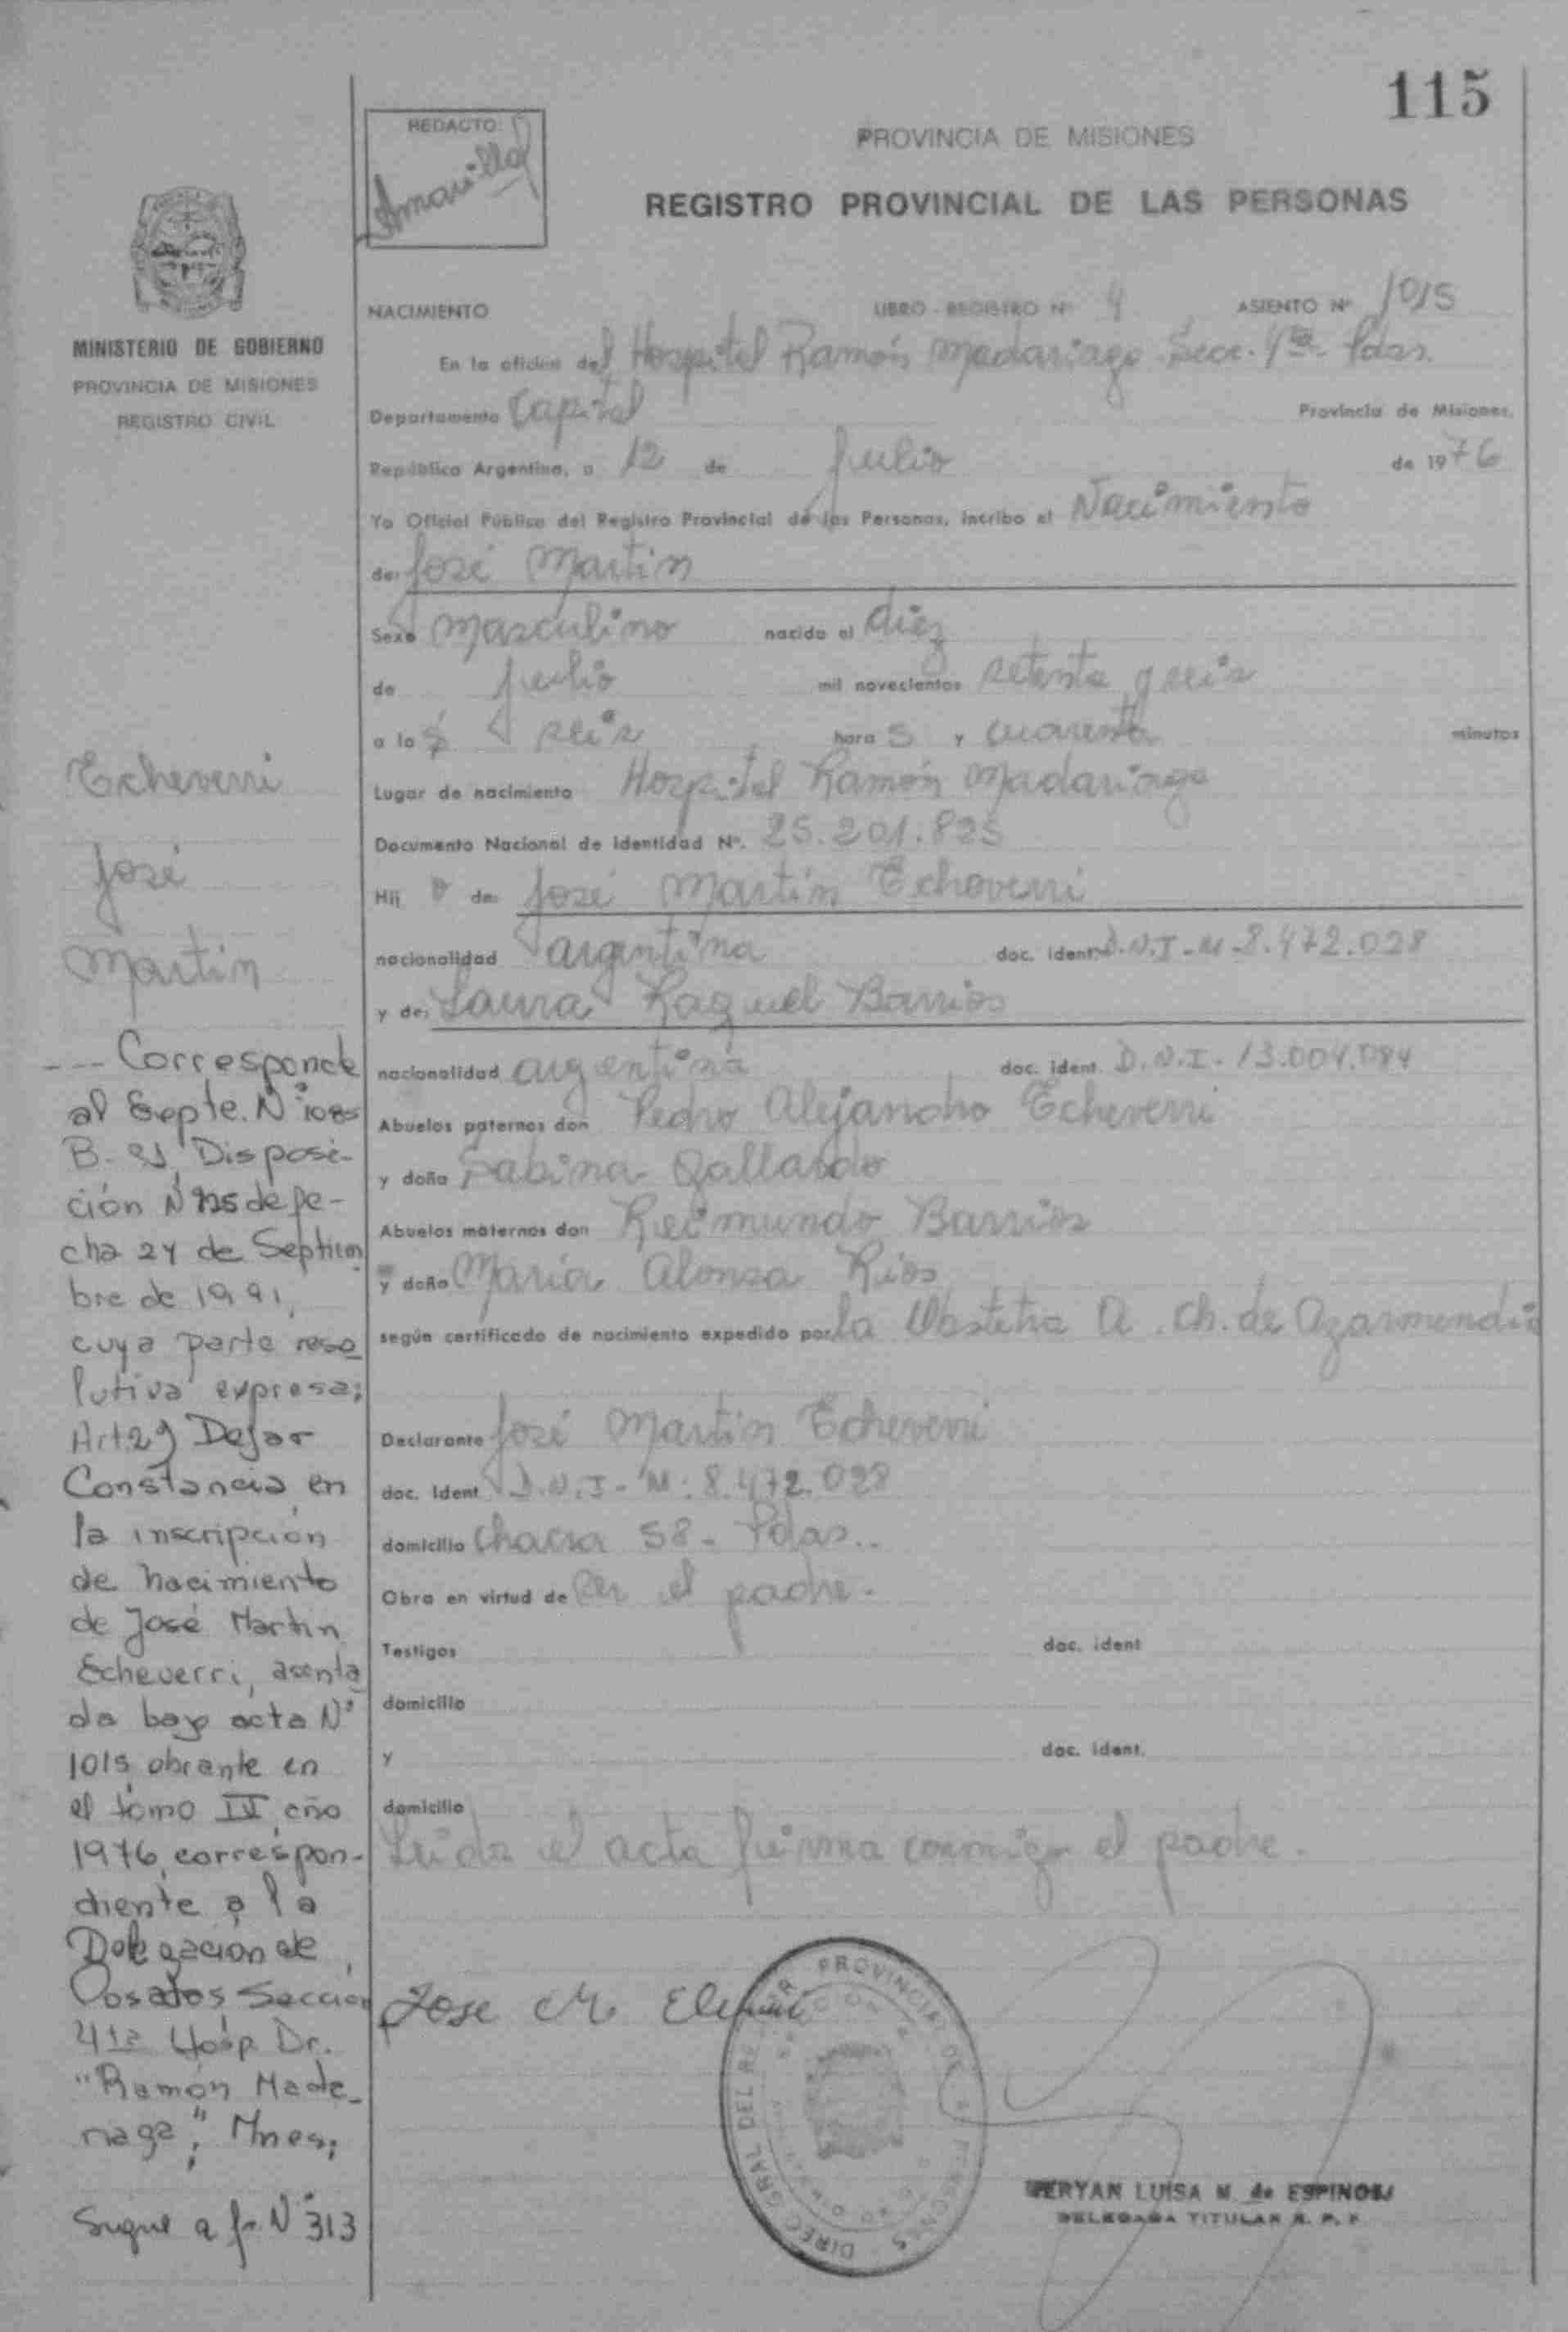 115
REDACTO:
PROVINCIA DE MISIONES
REGISTRO PROVINCIAL DE LAS PERSONAS
MINISTERIO DE GOBIERNO
PROVINCIA DE MISIONES
REGISTRO CIVIL
NACIMIENTO LIBRO - REGISTRO Nº 4 ASIENTO Nº 1015
En la oficina del Hospital Ramón Madariaga Secc. 4ta Pdas.
Departamento Capital Provincia de Misiones,
República Argentina, a 12 de Julio de 1976
Yo Oficial Público del Registro Provincial de las Personas, incribo el Nacimiento
de: José Martin
Sexo Masculino nacido el diez
de Julio mil novecientos setenta y seis
a las seis hora s y cuarenta minutos
Lugar de nacimiento Hospital Ramón Madariaga
Documento Nacional de Identidad Nº. 25.201.825
Hij o de: José Martin Echeverri
nacionalidad argentina doc. ident. D.N.I-M-8.472.028
y de: Laura Raquel Barrios
nacionalidad argentina doc. ident. D.N.I- 13.004.084
Abuelos paternos don Pedro Alejandro Echeverri
y doña Sabina Gallardo
Abuelos maternos don Reimundo Barrios
y doña María Alonsa Rios
según certificado de nacimiento expedido por la Obstetra A. Ch. de Azarmendia
Declarante José Martin Echeverri
doc. Ident D.N.I-M: 8.472.028
domicilio Chacra 58- Pdas..
Obra en virtud de ser el padre.
Testigos doc. ident
domicilio
y doc. ident.
domicilio
Leida el acta firma conmigo el padre.
Echeverri
José
Martin
--- Corresponde
al Expte. Nº 1085
B-91, Disposi-
ción Nº 925 de fe-
cha 24 de Septiem
bre de 1991,
cuya parte reso
lutiva expresa:
Art.2º) Dejar
Constancia en
la inscripción
de nacimiento
de José Martin
Echeverri, asenta
da bajo acta Nº
1015 obrante en
el tomo IV año
1976, correspon-
diente a la
Delegación de
Posadas Sección
4ta Hosp. Dr.
"Ramón Mada-
riaga", Mnes;
Sigue a fs. Nº 313
Jose M.
DIREC. GRAL DEL REGISTR. PROVINCIAL DE PERSONAS
LUISA M. de ESPINOSA
DELEGADA TITULAR R. P. P.